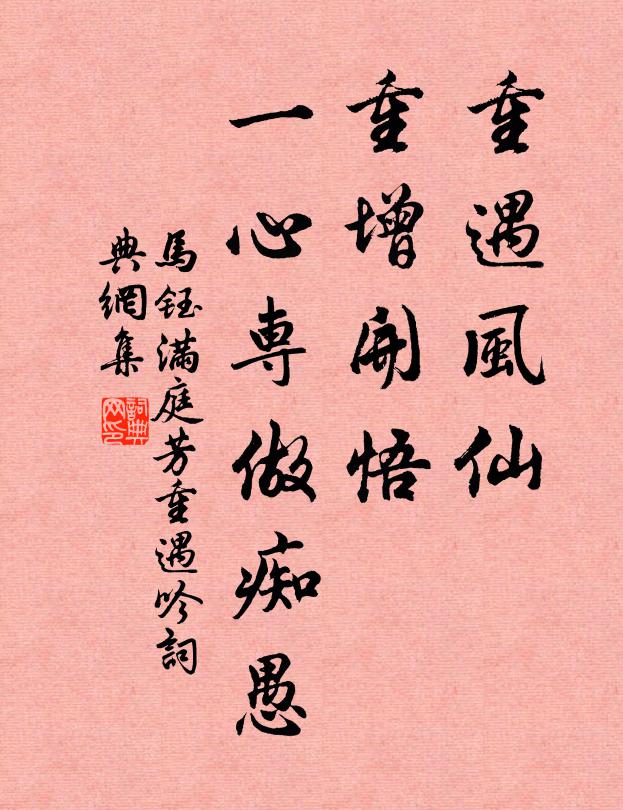 重遇風仙
重增開悟
一心専做痴愚
馬鈺滿庭芳重遇吟詞
典網集
詞典
网印